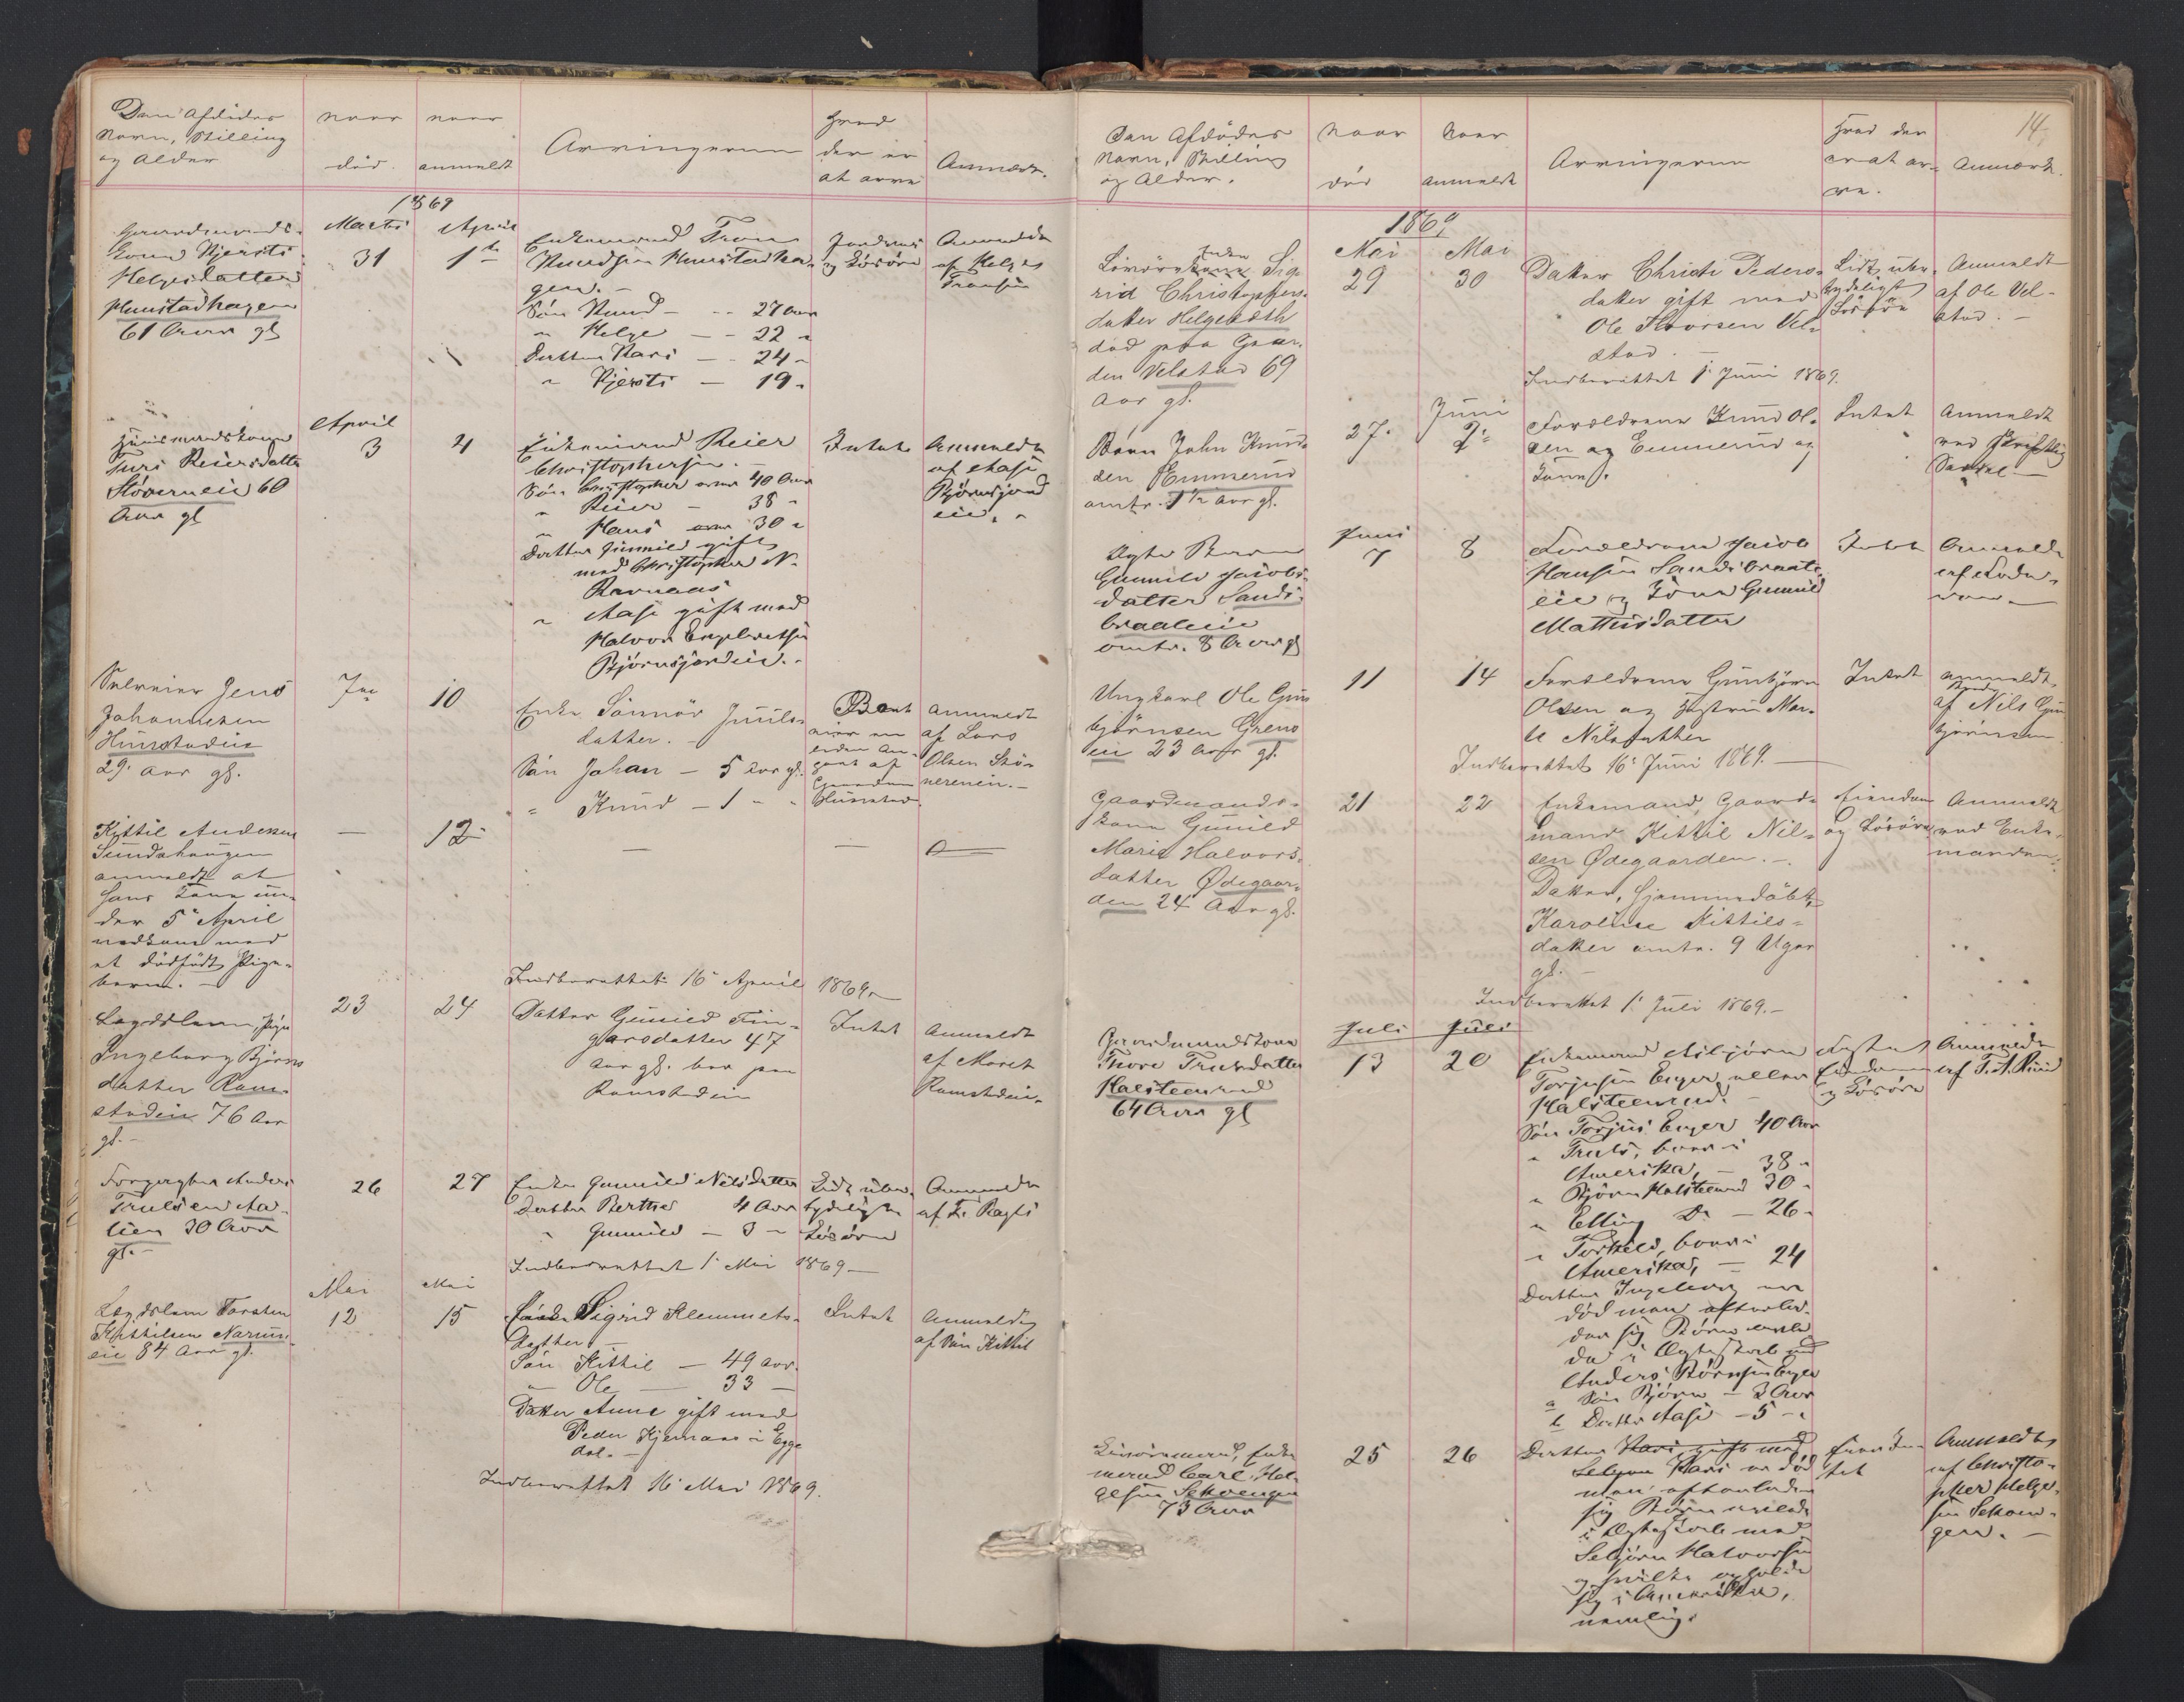 Den Afdødes
Navn, Stilling
og Alder
naar
død.
naar
anmeldt
Arvingerne
hvad
der er
at arve
Anmærk.
1869
Gaardmands-
kone Kjersti
Helgesdatter
Hunstadhagen
61 Aar gl
Marts
31
April
1ste
Enkemand Tron
Knudsen Hunstadha-
gen. -
Søn Knud - - 27 Aar
" Helge - - 22 "
Datter Kari - - 24 "
" Kjersti - 19 "
Jordgods
og Løsøre
Anmeldt
af Helge
Tronsen
Huusmandskone
Turi Reiersdatter
Støverneie 60
Aar gl
April
3
4
Enkemand Reier
Christophersen. -
Søn Christopher 40 Aar
" Reier - 38 "
" Hans 30 "
Datter Gunnild gift
med Christopher N.
Ravnaas
" Aase gift med
Halvor Engebretsen
Bjørnsjordeie. -
Intet
Anmeldt
af Aase
Bjørnsjord
eie. "
Selveier Jens
Johannesen
Hunstadeie
29 Aar gl.
10
Enke Sønnøv Juuls-
datter. -
Søn Johan - 5 Aar gl.
" Knud - 1 " "
anmeldt
af Lars
Olsen Stø-
verneeie. -
Kittil Andersen
Sundahaugen
anmeldt at
hans Kone un-
der 5te April
nedkom med
et dødfødt Pige-
barn. -
-
12
-
-
Indberettet 16 April 1869. -
Lægdslem, Pige
Ingeborg Bjørns
datter Ram-
stadeie 76 Aar
gl. -
23
24
Datter Gunild Fin-
garsdatter 47
Aar gl. bor paa
Ramstadeie
Intet
Anmeldt
af Maret
Ramstadeie.
Forpagter Anders
Trulsen Aa-
lien 30 Aar
gl. -
26
27
Enke Gunnild Nilsdatter
Datter Berthe 4 Aar
" Gunnild - 3 "
Lidt ube-
tydeligt
Løsøre
Anmeldt
af T. Ragli
Indberettet 1 Mai 1869 -
Mai
Mai
Lægdslem Torsten
Kittilsen Narum-
eie 84 Aar gl.
12
15
Enke Sigrid Klemmets-
datter -
Søn Kittil - 49 Aar.
" Ole - 33 -
Datter Anne gift med
Peder Kjemaas i Egge
dal. -
Intet
Anmeldt
af Søn Kittil
Indberettet 16 Mai 1869.
14
Den Afdødes
Navn, Stilling
og Alder.
Naar
død
Naar
anmeldt
Arvingerne
Hvad der
er at ar-
ve.
Anmærk.
1869
Mai
29
Mai
30
Løsøre Enke Sig-
rid Christophers-
datter Helgeseth
død paa Gaar-
den Velstad 69
Aar gl.
Datter Christi Peders-
datter gift med
Ole Thorsen Vel-
stad. -
Lidt ube-
tydeligt
Løsøre
Anmeldt
af Ole Vel-
stad. -
Indberettet 1 Juni 1869.
Barn John Knud-
sen Emmerud
omtr. 1 1/2 Aar gl.
27.
Juni
2
Forældrene Knud Ol-
sen og Emmerud og
Kone.
Intet
Anmeldt
ved skriftlig
Seddel -
Ægte Barn
Gunnild Jacobs-
datter Sands-
braateie
omtr. 8 Aar gl
Juni
7
8
Forældrene Jacob
Hansen Sandsbraat-
eie og Kone Gunnild
Mathisdatter
Intet
Anmeldt
af Fade-
ren -
Ungkarl Ole Gun
bjørnsen Grens
eie 23 Aar gl.
11
14
Forældrene Gunbjørn
Olsen og Hustru Mar-
te Nilsdatter
Intet
anmeldt
af Nils Gun
bjørnsen
Indberettet 16 Juni 1869. -
Gaardmands-
kone Gunild
Marie Halvors-
datter Ødegaar-
den 24 Aar gl.
21
22
Enkemand, Gaard-
mand Kittil Nil-
sen Ødegaarden. -
Datter, Hjemmedøbt,
Karoline Kittils-
datter omtr. 9 Uger
gl. -
Eiendom
og Løsøre
Anmeldt
ved Enke-
manden.
Indberettet 1 Juli 1869. -
Gaardmandskone
Thore Trulsdatter
Halsteenrud
64 Aar gl
Juli
13
Juli
20
Enkemand Asbjørn
Torjusen Enger eller
Halsteenrud. -
Søn Torjus Enger 40 Aar
" Truls, boer i
Amerika, - 38 "
" Bjørn Halsteenrud 30 "
" Elling Do - 26 "
" Torkild, boer i
Amerika, - 24
Datter Ingeborg er
død men efterla-
der sig Børn avle-
de i Ægteskab med
Anders Børnsen Enger
a Søn Bjørn - 3 Aar
b Datter Aase - 5 - "
Eiendom
og Løsøre
Anmeldt
af T. A. Ruud
Løsøremand, Enke
mand Carl Hel-
gesen Sekvengen
73 Aar
25
26
Datter Kari, gift med
Kari er død
men efterlader
sig Børn avlede
i Ægteskab med
Seljøru Halvorsen
og hvilke opholde
sig i Amerika,
nemlig:
Anmeldt
af Christo-
pher Helge-
sen Sekven-
gen. -